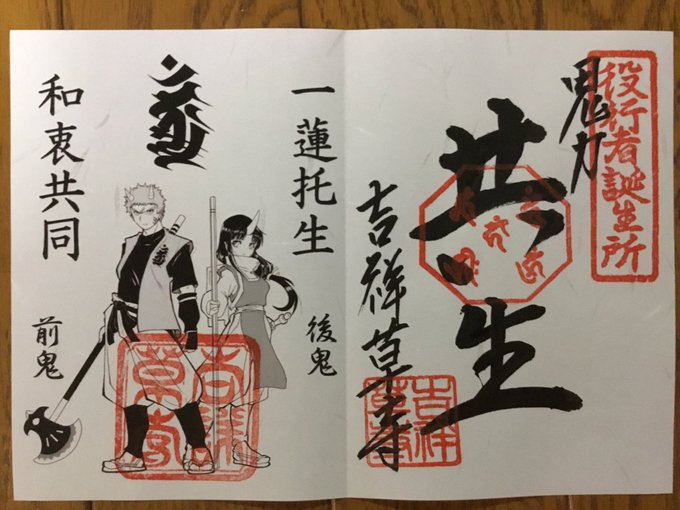 役行者誕生所
鬼力
共生
吉祥草寺
一蓮托生
後鬼
和衷共同
前鬼